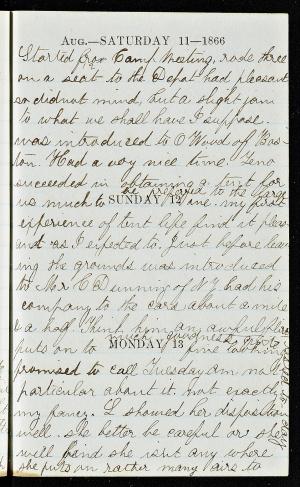 Aug.—SATURDAY 11—1866
Started for Camp Meeting, rode three
on a seat to the Depot had pleasant
so did not mind, but a slight jam
to what we shall have I suppose
was introduced to O Wood of Bos-
ton. Had a very nice time.
succeeded in obtaining a tent for
us much to the
SUNDAY 12
one. my first
experience of tent life find it pleas
ant as I expected to. Just before leav
ing the grounds was introduced
to Mr. C Dunning of N.Y had his
company to the cars about a mile
& a half. think him an awful
puts on to much goodness
MONDAY 13
promised to call Tuesday am not
particular about it. not exactly
my fancy. I showed her disposition
well. she better be careful or she
will find she isnt any where
she puts on rather many airs to